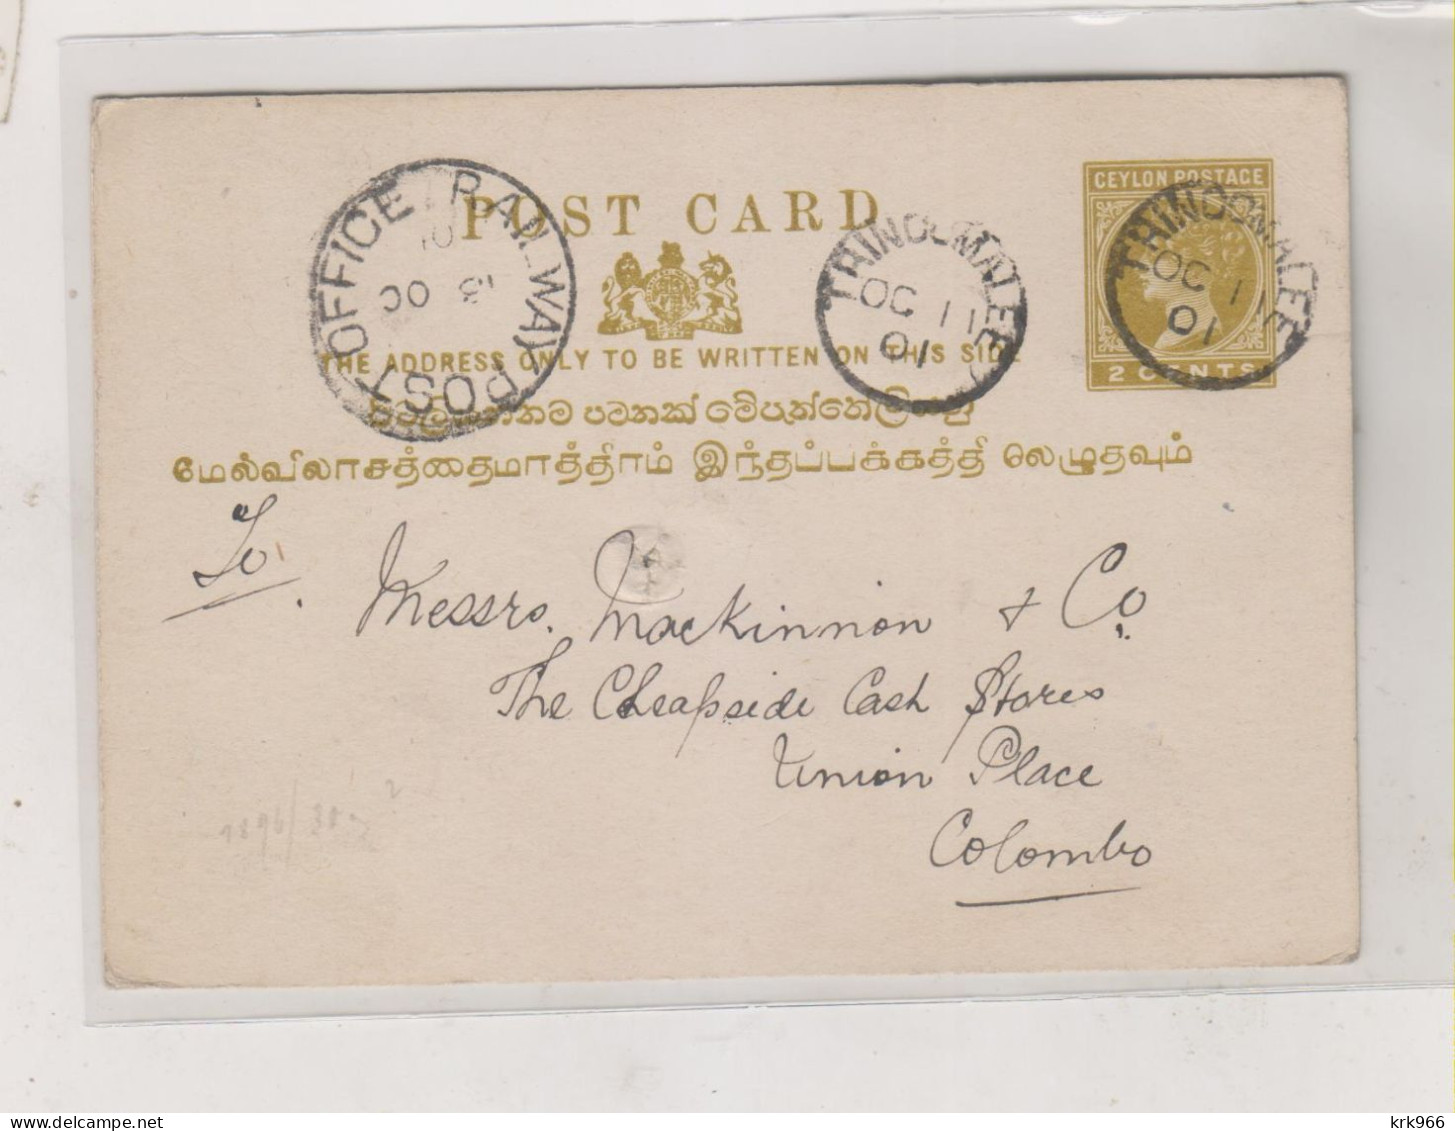 POST CARD
CEYLON POSTAGE
2 CENTS
RAILWAY POST OFFICE
13 OC
01
TRINCOMALEE
OC 11
01
TRINCOMALEE
OC 11
01
THE ADDRESS ONLY TO BE WRITTEN ON THIS SIDE
மேல்விலாசத்தைமாத்திரம் இந்தப்பக்கத்தி லெழுதவும்
To
Messrs. Mackinnon & Co.
The Cheapside Cash Stores
Union Place
Colombo
krk966